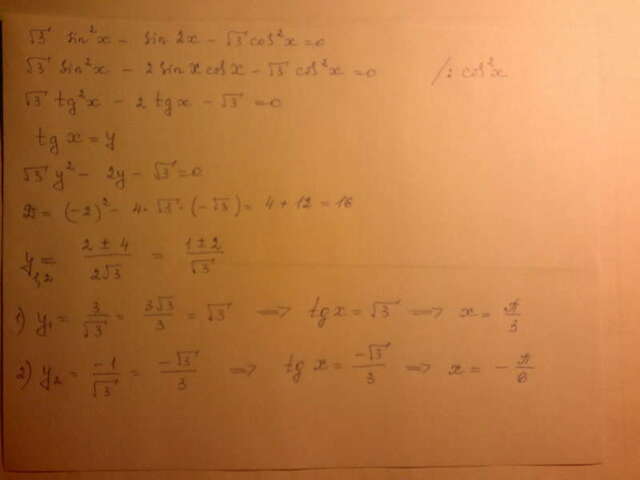 √3 sin²x - sin 2x - √3 cos²x = 0
√3 sin²x - 2 sin x cos x - √3 cos²x = 0 /: cos²x
√3 tg²x - 2 tg x - √3 = 0
tg x = y
√3 y² - 2y - √3 = 0
D = (-2)² - 4·√3·(-√3) = 4 + 12 = 16
y₁,₂ = (2 ± 4)/(2√3) = (1 ± 2)/√3
1) y₁ = 3/√3 = 3√3/3 = √3 ⇒ tg x = √3 ⇒ x = π/3
2) y₂ = -1/√3 = -√3/3 ⇒ tg x = -√3/3 ⇒ x = -π/6